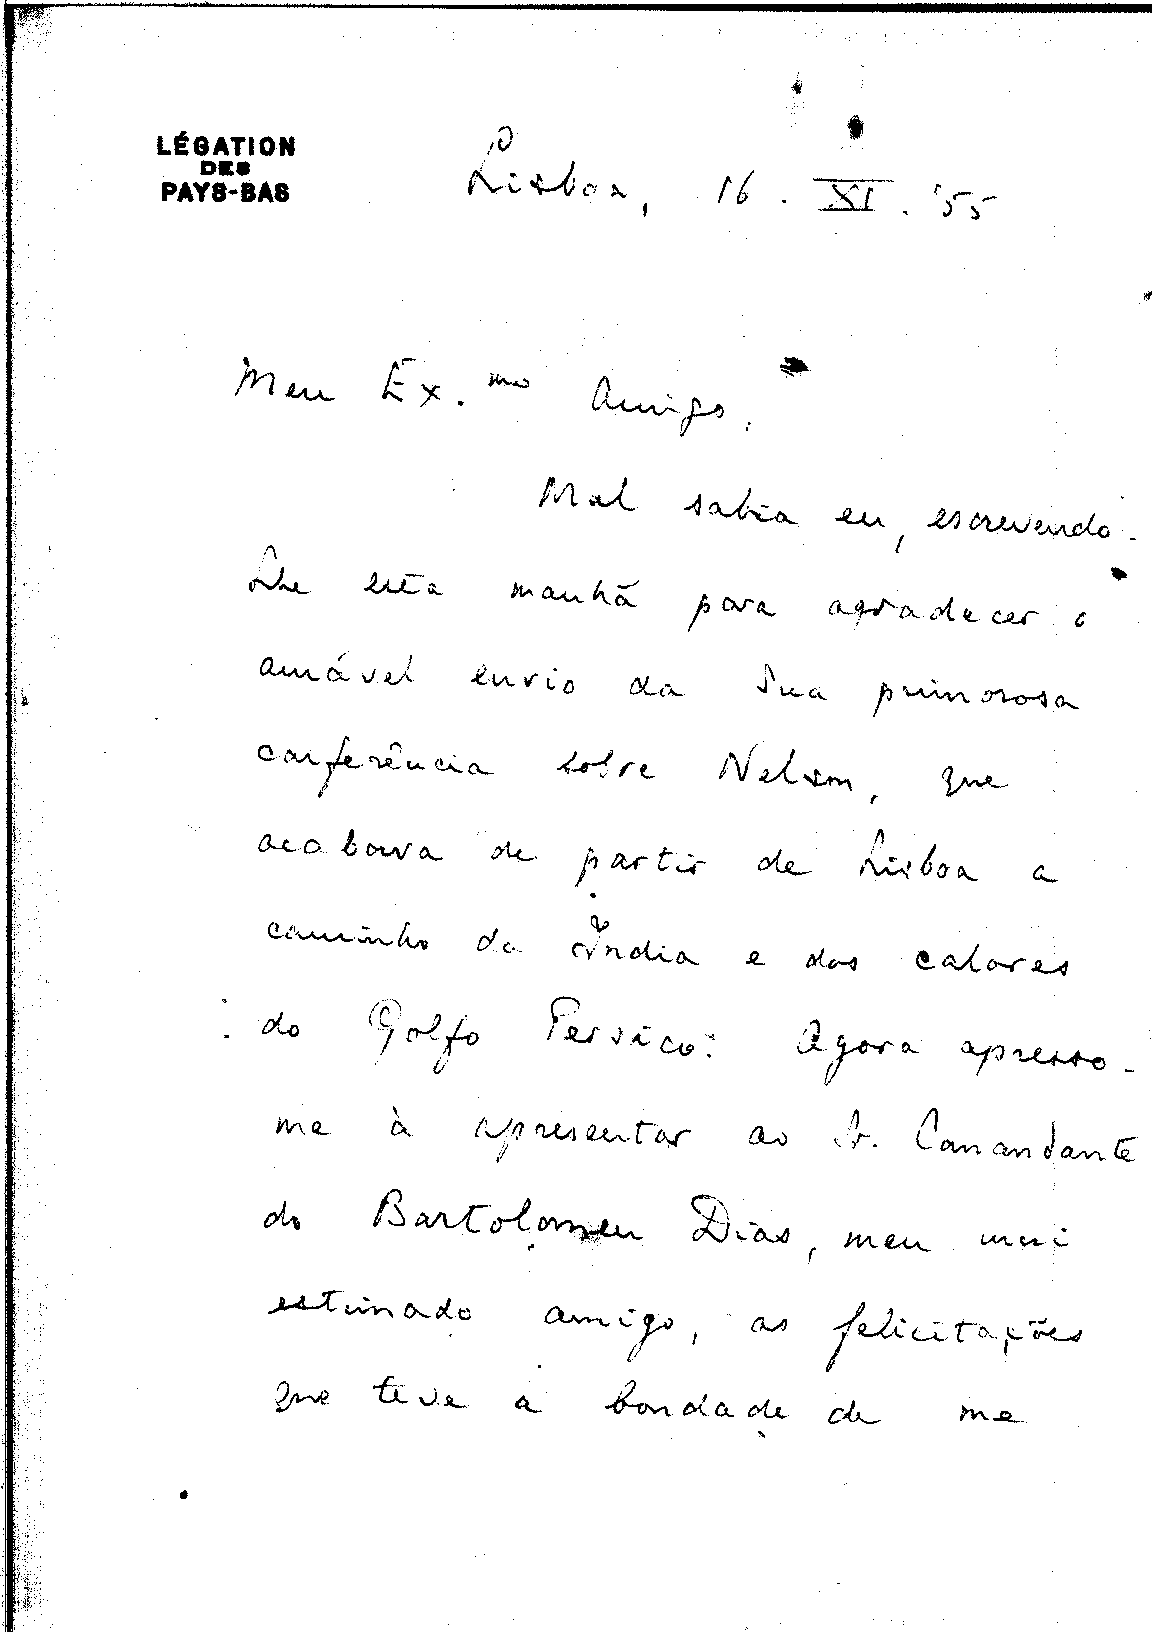 LÉGATION
DES
PAYS-BAS
Lisboa, 16. XI. '55
Meu Ex.mo Amigo,
Mal sabia eu, escrevendo-
lhe esta manhã para agradecer o
amável envio da Sua primorosa
conferência sobre Nelson, que
acabava de partir de Lisboa a
caminho da Índia e dos calores
do Golfo Persico: Agora apresso-
me à apresentar ao Sr. Comandante
do Bartolomeu Dias, meu mui
estimado amigo, as felicitações
que teve a bondade de me